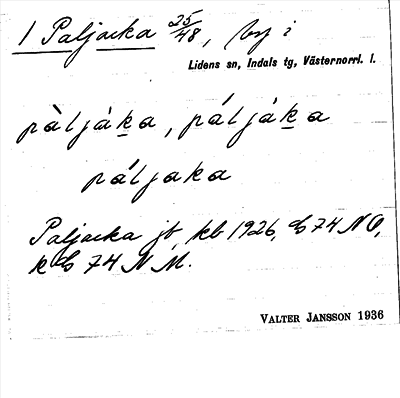 1 Paljacka 25/48, by i
Lidens sn, Indals tg, Västernorrl. l.
pàljàka, páljàka
páljaka
Paljacka jb, kb 1926, G 74 NO,
k G 74 NM.
VALTER JANSSON 1936